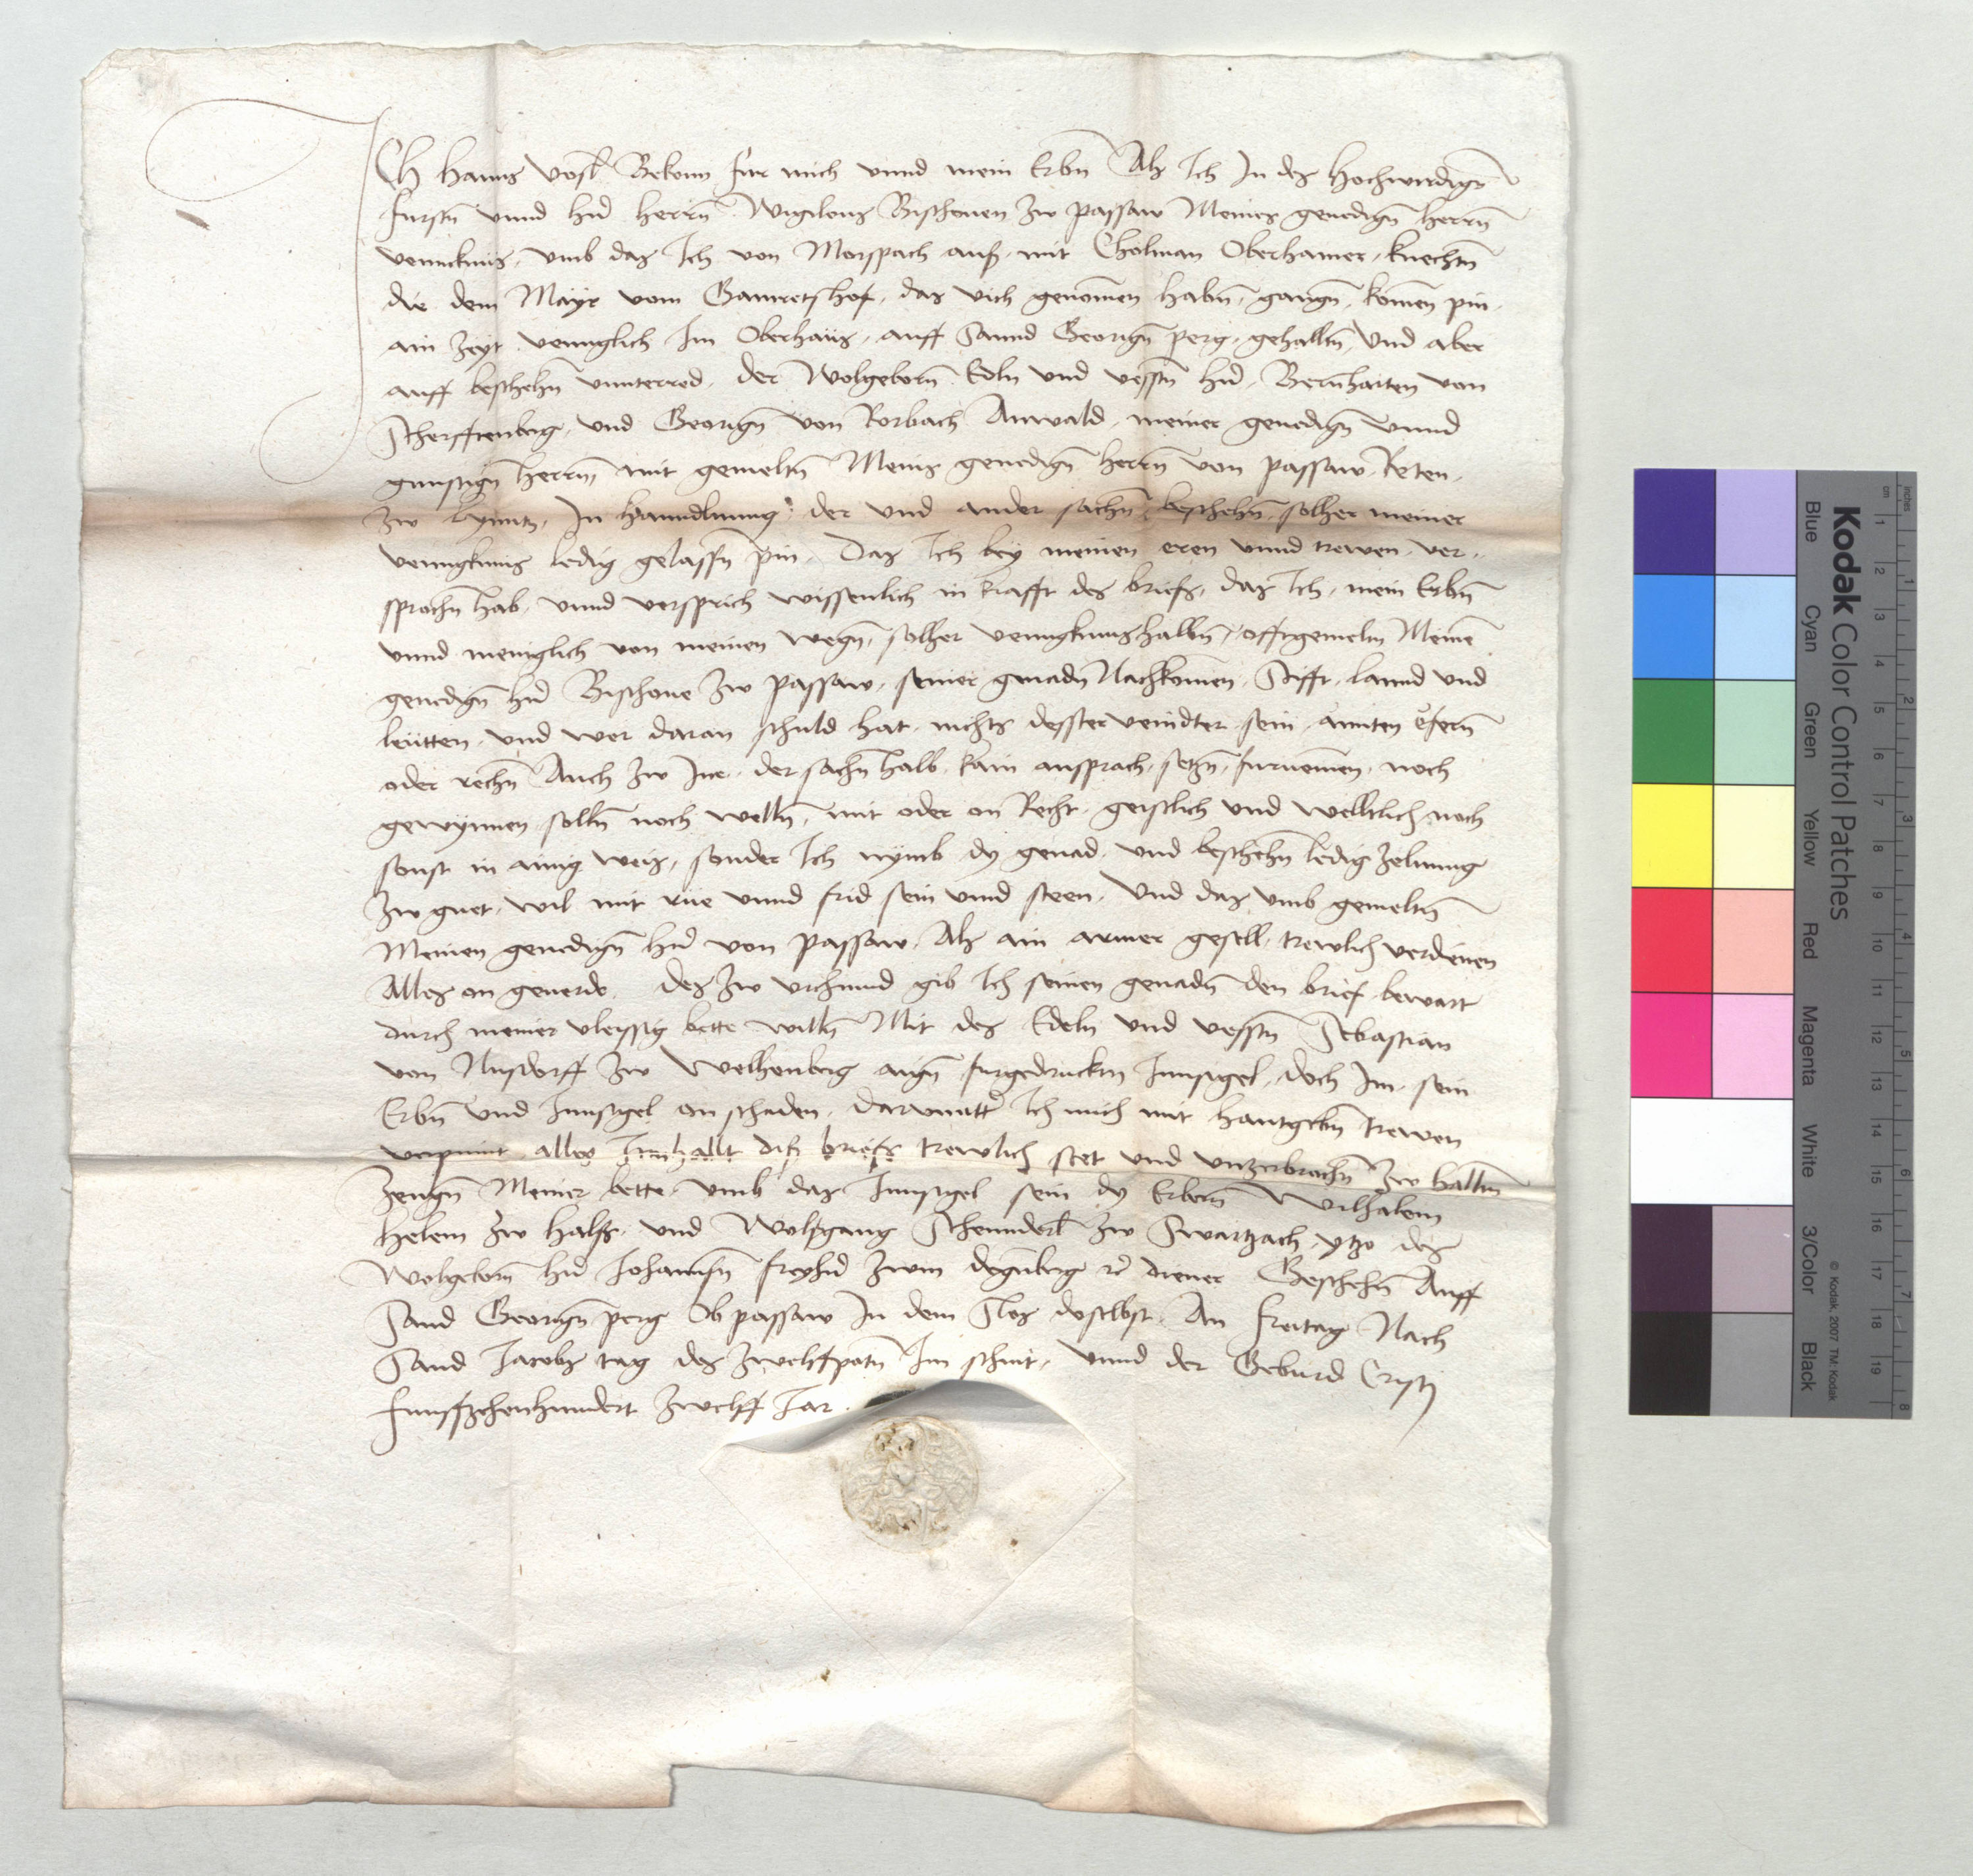 Ich Hanns Vosl Bekenn fur mich unnd mein Erbn Als Ich In des Hochwirdign
fursten unnd hern herrn Wigileus Bischouen zw passaw Meines genedign herrn
venncknus, umb das Ich von Morspach aus, mit Cholman Oberhamer, knechtn
die dem Mayr vom Gamretzhof, das vich genomen habn, gangn, komen pin,
ain Zeyt venngklich Im Oberhaus, auff Sannd Georign perg, gehalltn, Und aber
auff beschehn unnterred, der Wolgeborn Edln und vesstn hern, Bernharten von
Scherffenberg, und Georign von Rorbach Anwald, meiner genedign unnd
gunstign herrnn mit gemeltn Meins genedign herrn von passaw Reten,
zw Lynntz, In hanndlunng, der und ander sachn, beschehn, solher meiner
venngknus ledig gelassn pin, Das Ich bey meinen eren unnd trewen, ver,,
sprochn hab, unnd versprich wissentlich in krafft des briefs, das Ich, mein Erbn
unnd meniglich von meinen wegn, solher venngknus halbn, offtgemeltn Meinem
genedign hern Bischoue zw passaw, seiner genadn Nachkomen, Stifft, lannd und
leutten, und wer daran schuld hat, nichts desster veindter sein, annten efern
oder rechn Auch zw Ine, der sachn halb, kain ansprach, setzn, furnemen, noch
gewynnen solln noch welln, mit oder on Recht, geistlich und welltlich noch
sonst in ainig weis, sonder Ich nymb dy genad, und beschehn ledig zelunng
zw guet, wil mit rue unnd frid sein unnd steen, Und das umb gemeltn
Meinen genedign hern von passaw, Als ain armer gesell, trewlich verdienen
Alles on geuerde, Des zw urchunnd gib Ich seinen genadn den brief bewart
durch meiner vleyssig bette willn Mit des Edeln und vesstn Sebastian
von Nusdorff zw Welhenberg aign furgedrucktn Innsigel, doch Im, sein
Erbn und Innsigel on schaden, Darunnttr Ich mich mit hantgebn trewen
verpinnt alles Innhallt diß briefs trewlich stet und unzerbrochn zw halltn
Zeugn Meiner bette umb das Innsigel sein dy Erbern Wilhalem
Helem zw Hals, und Wolfgang Schenndrl zw Swartzach, yzo des
Wolgeborn hern Johannsn freyhern zwm degnberg rc diener Geschehn Auff
Sand Georign perg Ob passaw In dem Slos doselbst, An Freitag Nach
Sand Jacobs tag des zwelfpotn Im schnit, unnd der Geburd Cristj
funffzehenhundert zwelff Jar.
Kodak Color Control Patches
Blue Cyan Green Yellow Red Magenta White 3/Color Black
© Kodak, 2007 TM: Kodak
inches 1 2 3 4 5 6 7 8
cm 1 2 3 4 5 6 7 8 9 10 11 12 13 14 15 16 17 18 19